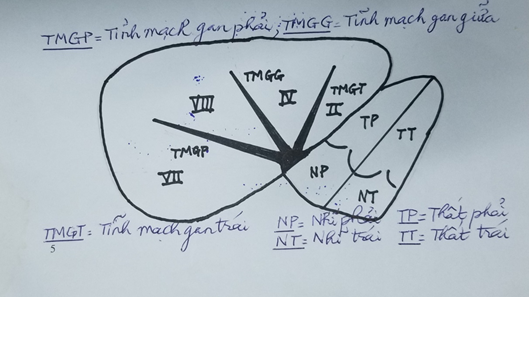 TMGP = Tĩnh mạch gan phải; TMGG = Tĩnh mạch gan giữa
TMGG
TMGT
VIII
IV
II
TP
TT
TMGP
VII
NP
NT
TMGT = Tĩnh mạch gan trái
NP = Nhĩ phải
TP = Thất phải
NT = Nhĩ trái
TT = Thất trái
S